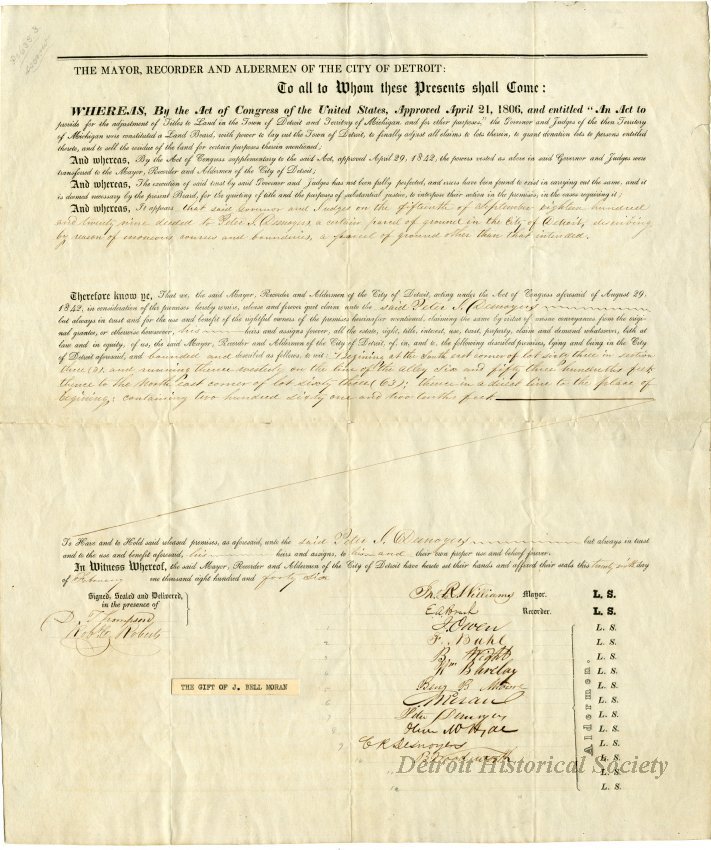 THE MAYOR, RECORDER AND ALDERMEN OF THE CITY OF DETROIT:
To all to Whom these Presents shall Come:
WHEREAS, By the Act of Congress of the United States, Approved April 21, 1806, and entitled "An Act to
provide for the adjustment of Titles to Land in the Town of Detroit and Territory of Michigan and for other purposes," the Governor and Judges of the then Territory
of Michigan were constituted a Land Board, with power to lay out the Town of Detroit, to finally adjust all claims to lots therein, to grant donation lots to persons entitled
thereto, and to sell the residue of the land for certain purposes therein mentioned;
And whereas, By the Act of Congress supplementary to the said Act, approved April 29, 1842, the powers vested as above in said Governor and Judges were
transferred to the Mayor, Recorder and Aldermen of the City of Detroit;
And whereas, The execution of said trust by said Governor and Judges has not been fully perfected, and errors have been found to exist in carrying out the same, and it
is deemed necessary by the present Board, for the quieting of title and the purposes of substantial justice, to interpose their action in the premises, in the cases requiring it;
And whereas, It appears that said Governor and Judges on the fifteenth of September eighteen hundred
and twenty nine deeded to Peter J. Desnoyers a certain parcel of ground in the City of Detroit, describing
by reason of erroneous courses and boundaries, a parcel of ground other than that intended.
Therefore know ye, That we, the said Mayor, Recorder and Aldermen of the City of Detroit, acting under the Act of Congress aforesaid of August 29,
1842, in consideration of the premises hereby remise, release and forever quit claim unto the said Peter J. Desnoyers
but always in trust and for the use and benefit of the rightful owners of the premises hereinafter mentioned, claiming the same by virtue of mesne conveyances from the origi-
nal grantee, or otherwise howsoever, his heirs and assigns forever, all the estate, right, title, interest, use, trust, property, claim and demand whatsoever, both at
law and in equity, of us, the said Mayor, Recorder and Aldermen of the City of Detroit, of, in, and to, the following described premises, lying and being in the City
of Detroit aforesaid, and bounded and described as follows, to wit: Begining at the South east corner of lot sixty three in section
three (3), and running thence westerly on the line of the alley six and fifty three hundredths feet
thence to the North east corner of lot sixty three (63); thence in a direct line to the place of
begining; containing two hundred sixty one and two tenths feet
To Have and to Hold said released premises, as aforesaid, unto the said Peter J. Desnoyers but always in trust
and to the use and benefit aforesaid, his heirs and assigns, to him and their own proper use and behoof forever.
In Witness Whereof, the said Mayor, Recorder and Aldermen of the City of Detroit have hereto set their hands and affixed their seals this twenty sixth day
of February one thousand eight hundred and forty six
Signed, Sealed and Delivered,
in the presence of
D. Thompson
Robt. Roberts
Jn. R. Williams Mayor. L. S.
E A Brush Recorder. L. S.
J. Owen L. S.
1
F. Buhl L. S.
2
B. Wight L. S.
3
Wm Barclay L. S.
4
Benj B Moore L. S.
5
Moran L. S.
6
Peter Desnoyers L. S.
7
Oliver M Hyde L. S.
8
C R Desnoyers L. S.
9
B Woodworth L. S.
L. S.
L. S.
Aldermen.
THE GIFT OF J. BELL MORAN
Detroit Historical Society